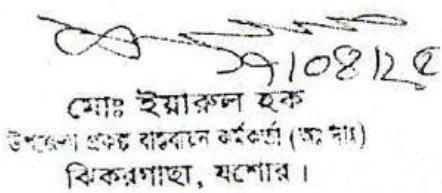 ২৭/০৪/২৫
মোঃ ইয়ারুল হক
উপজেলা প্রকল্প বাস্তবায়ন কর্মকর্তা (অঃ দাঃ)
ঝিকরগাছা, যশোর।